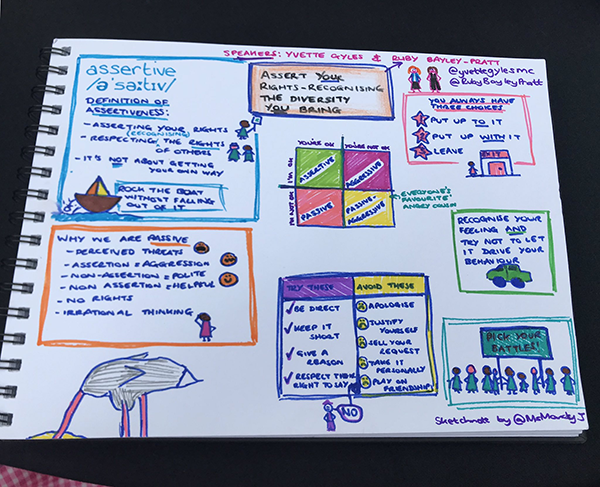 SPEAKERS: YVETTE GYLES & RUBY BAYLEY-PRATT
@yvettegylesmc
@RubyBayleyPratt
assertive
/ə'sə:tɪv/
DEFINITION OF
ASSERTIVENESS:
- ASSERTING YOUR RIGHTS
(RECOGNISING)
- RESPECTING/THE RIGHTS
OF OTHERS
- IT'S NOT ABOUT GETTING
YOUR OWN WAY
ROCK THE BOAT
WITHOUT FALLING
OUT OF IT
ASSERT YOUR
RIGHTS - RECOGNISING
THE DIVERSITY
YOU BRING
YOU ALWAYS HAVE
THREE CHOICES
1 PUT UP TO IT
2 PUT UP WITH IT
3 LEAVE
EXIT
YOU'RE OK
YOU'RE NOT OK
I'M OK
I'M NOT OK
ASSERTIVE
AGGRESSIVE
PASSIVE
PASSIVE-
AGGRESSIVE
EVERYONE'S
FAVOURITE
ANGRY COUSIN
WHY WE ARE PASSIVE
- PERCEIVED THREATS
- ASSERTION = AGGRESSION
- NON-ASSERTION = POLITE
- NON ASSERTION = HELPFUL
- NO RIGHTS
- IRRATIONAL THINKING
RECOGNISE YOUR
FEELING AND
TRY NOT TO LET
IT DRIVE YOUR
BEHAVIOUR
TRY THESE
BE DIRECT
KEEP IT
SHORT
GIVE A
REASON
RESPECT THEIR
RIGHT TO SAY
NO
AVOID THESE
APOLOGISE
JUSTIFY
YOURSELF
SELL YOUR
REQUEST
TAKE IT
PERSONALLY
PLAY ON
FRIENDSHIP
PICK YOUR
BATTLES!
Sketchnote by @MsMandyJ